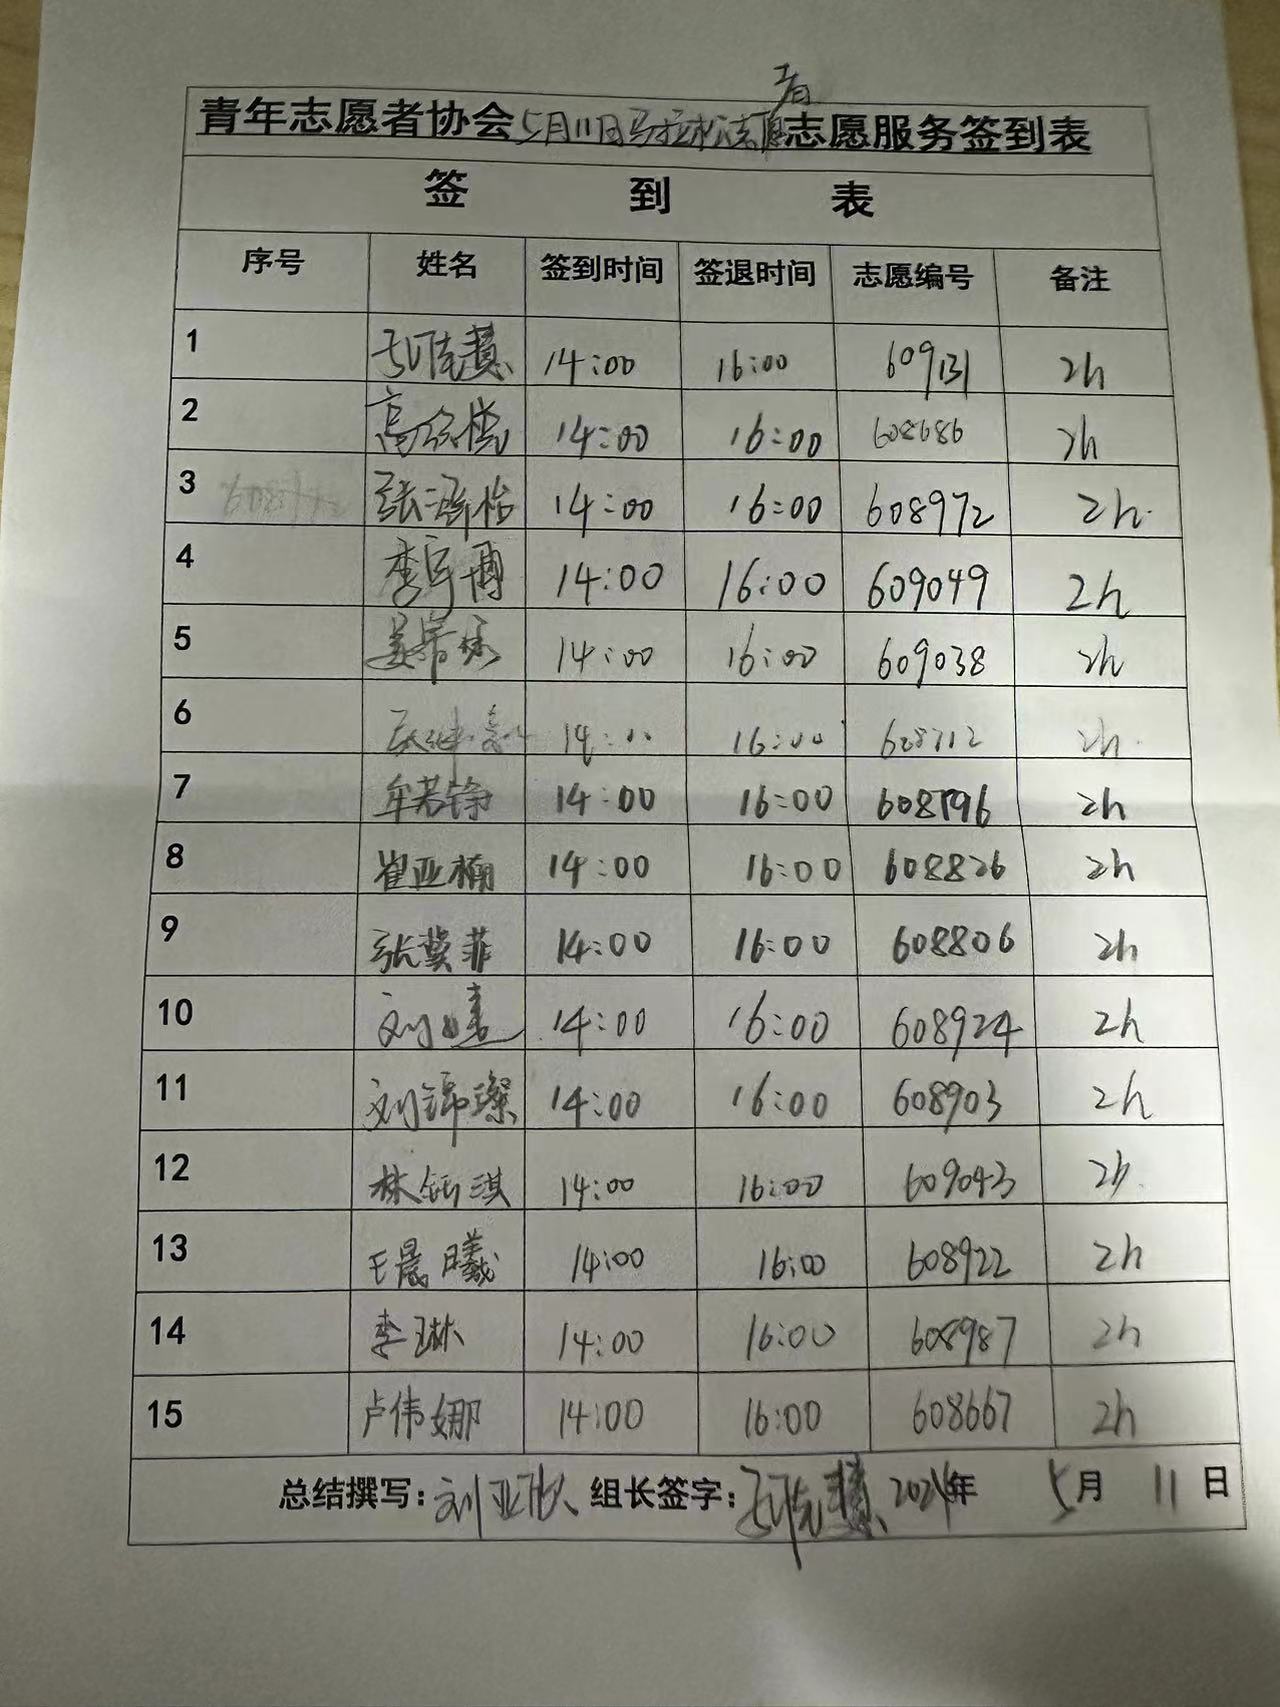 青年志愿者协会5月11日马拉松志愿者志愿服务签到表
签 到 表
序号 姓名 签到时间 签退时间 志愿编号 备注
1 14:00 16:00 609131 2h
2 14:00 16:00 608686 2h
3 张泽怡 14:00 16:00 608972 2h
4 李宇博 14:00 16:00 609049 2h
5 14:00 16:00 609038 2h
6 14:00 16:00 2h
7 牟若铮 14:00 16:00 608796 2h
8 崔亚楠 14:00 16:00 608826 2h
9 张冀菲 14:00 16:00 608806 2h
10 刘 14:00 16:00 608924 2h
11 刘锦璨 14:00 16:00 608903 2h
12 林钰淇 14:00 16:00 609043 2h
13 王晨曦 14:00 16:00 608922 2h
14 李琳 14:00 16:00 608987 2h
15 卢伟娜 14:00 16:00 608667 2h
总结撰写:刘亚 组长签字: 年 5月 11日